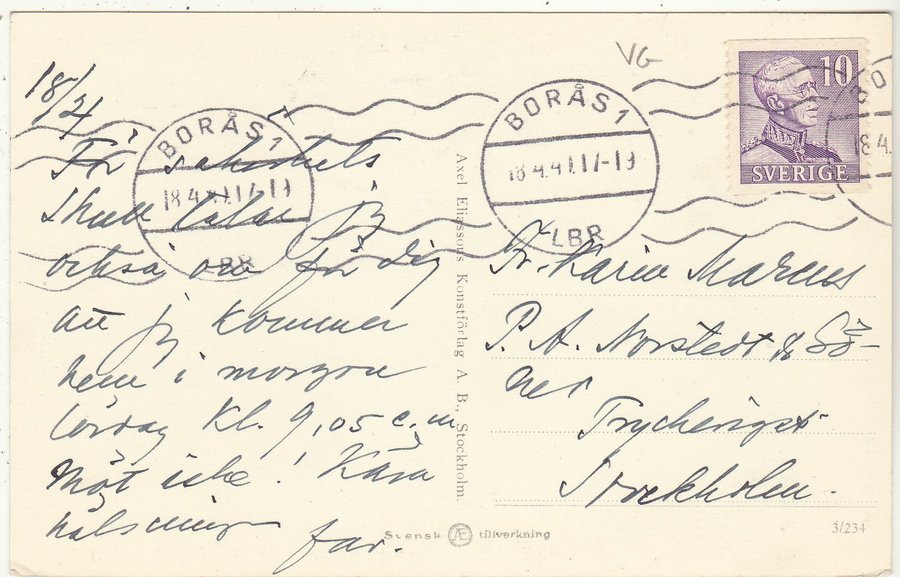 VG
10
SVERIGE
BORÅS 1
18.4.41.17-19
LBR
BORÅS 1
18.4.41.17-19
LBR
18.4.
18/4
För säkerhets
skull talar jag
också om för dig
att jag kommer
hem i morgon
lördag kl. 9,05 e.m
Möt icke! Kära
hälsningar
far.
Axel Eliassons Konstförlag A. B., Stockholm.
Fr. Karin Marcus
P. A. Norstedt & Sö-
ner
Tryckeriget
Stockholm.
Svensk Æ tillverkning
3/234